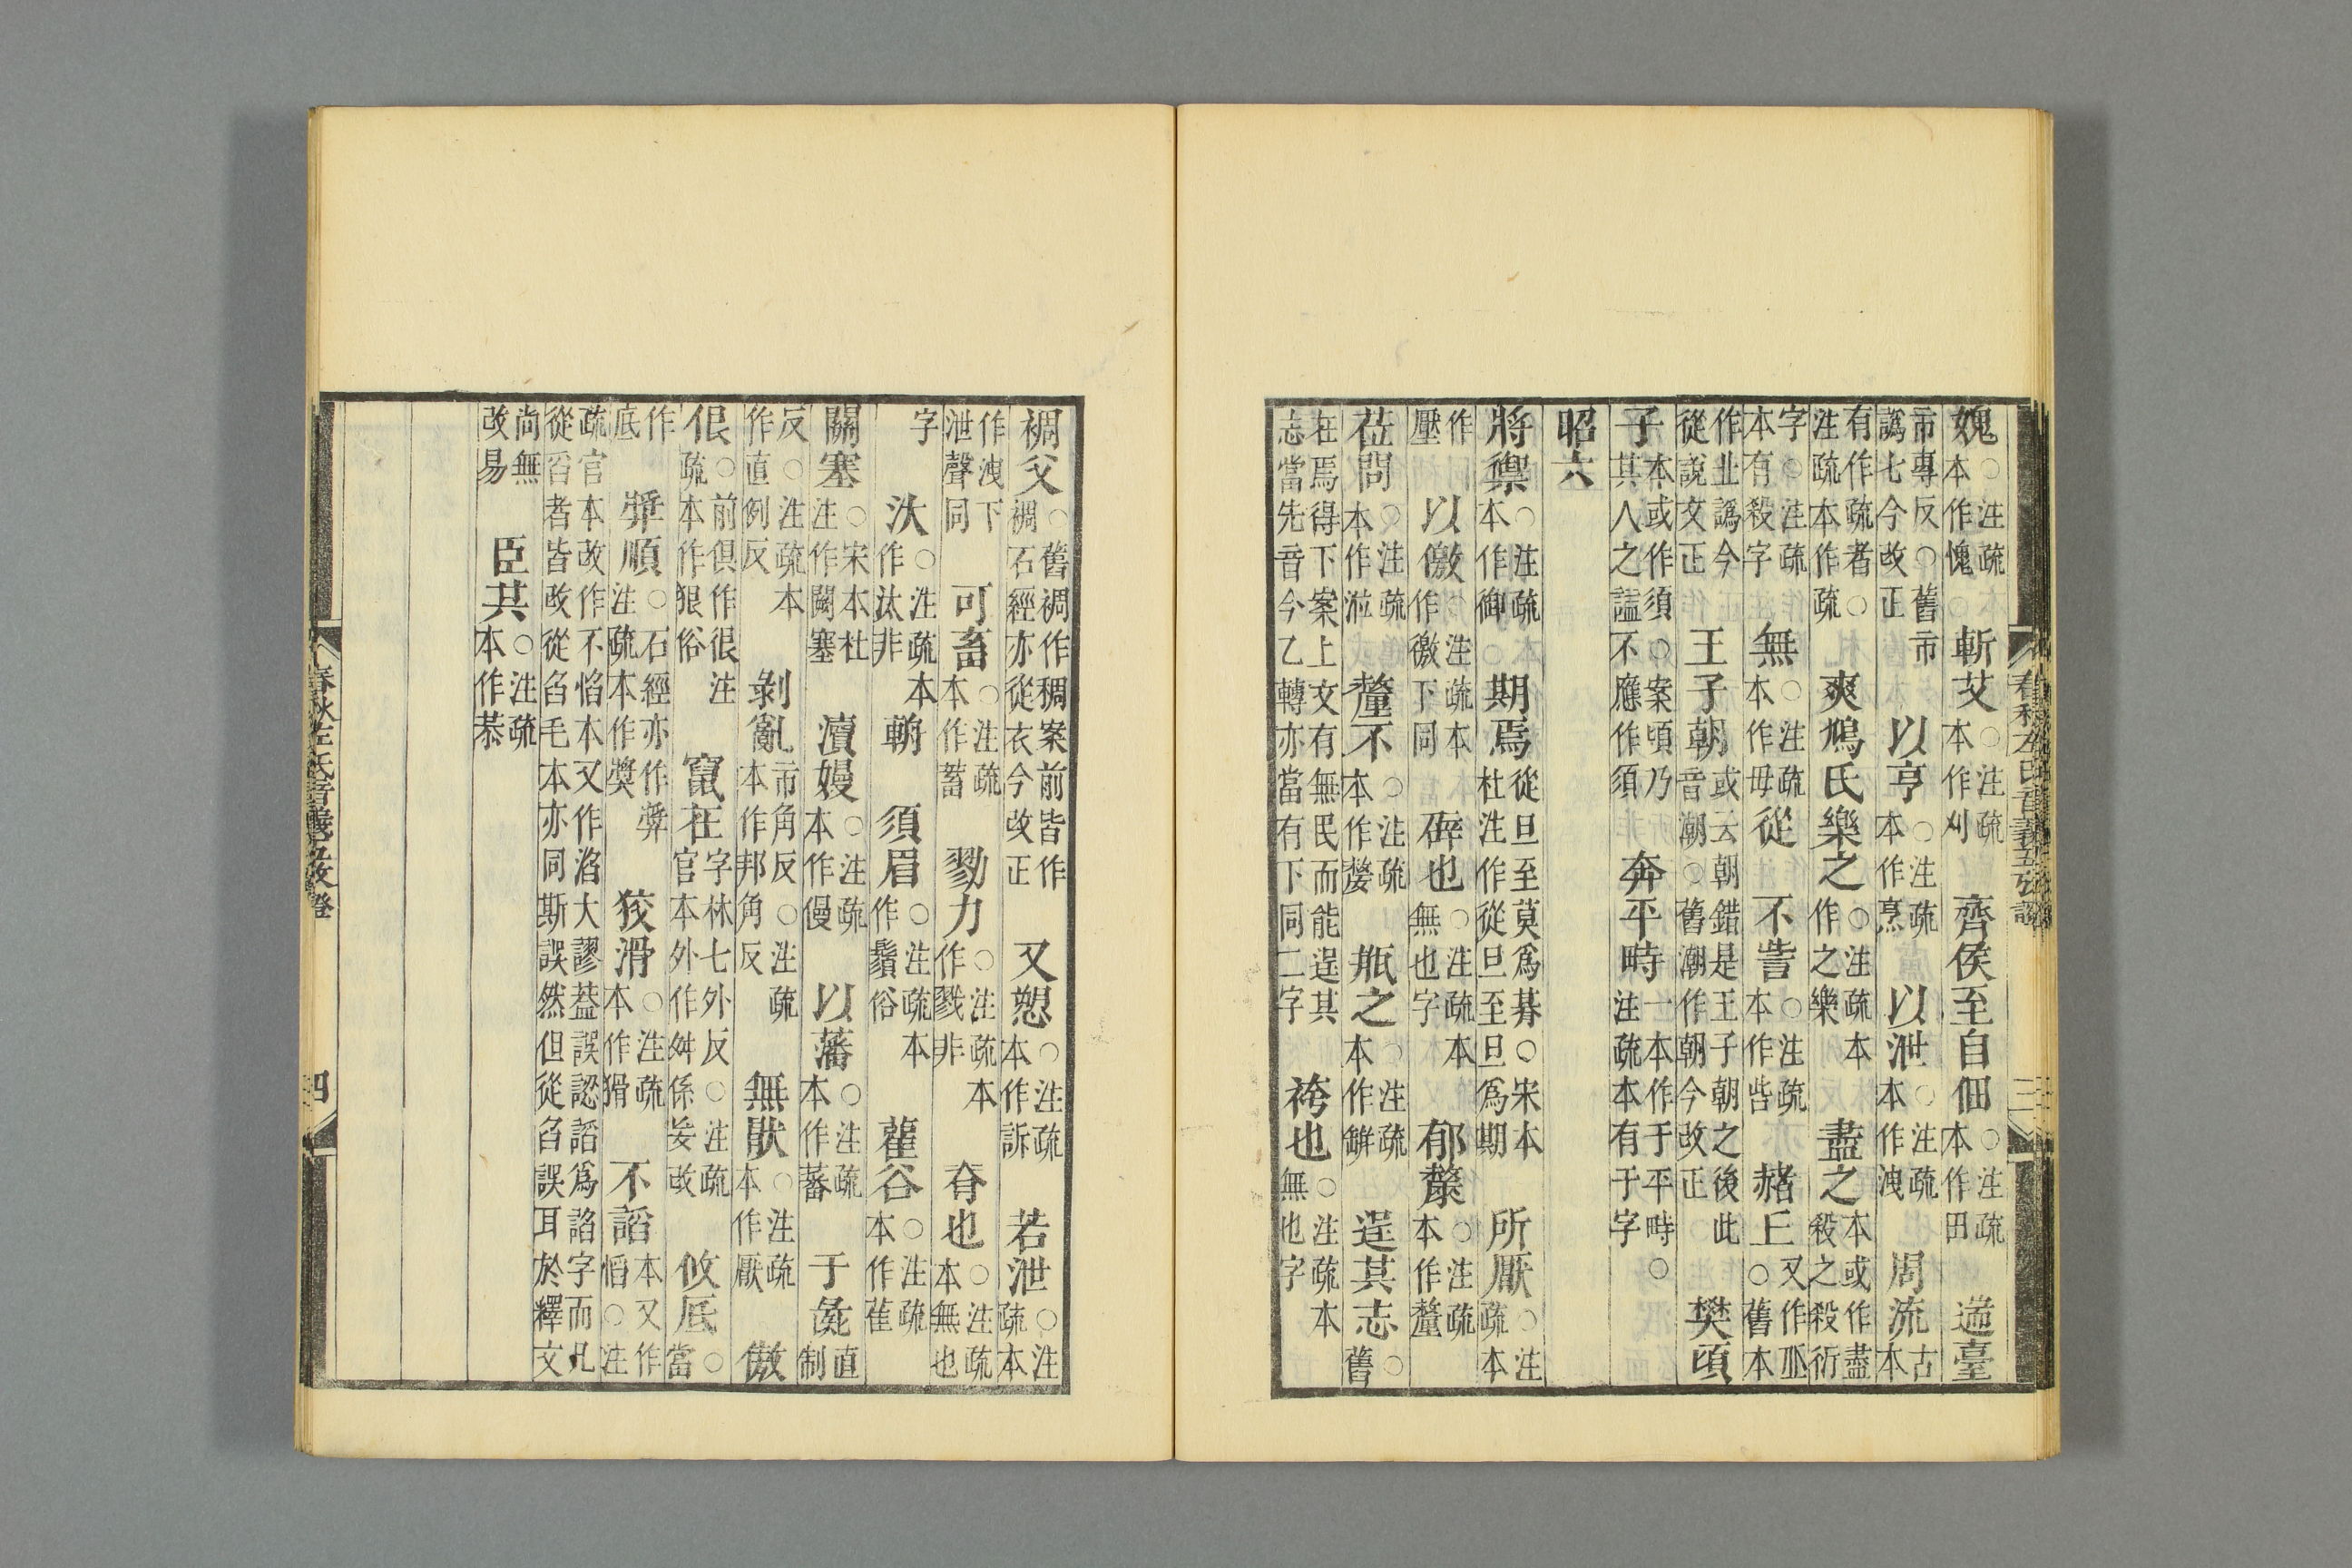 媿○注疏本作愧 斬艾○注疏本作刈 齊侯至自佃○注疏本作田 遄臺
市專反○舊市譌七今改正 以亨○注疏本作烹 以泄○注疏本作洩 周流古本
有作疏者○注疏本作疏 爽鳩氏樂之○注疏本作之樂 盡之本或作盡殺之殺衍
字○注疏本有殺字 無○注疏本作毋 從 不訾○注疏本作呰 赭丘又作丠○舊本
作㐀譌今從說文正 王子朝或云朝錯是王子朝之後此音潮○舊潮作朝今改正 樊頃
子本或作須○案頃乃其人之諡不應作須 奔平畤一本作于平畤○注疏本有于字
昭六
將禦○注疏本作御 期焉從旦至莫爲朞○宋本杜注作從旦至旦爲期 所厭○注疏本
作壓 以儌注疏本作徼下同 碎也○注疏本無也字 郁𨤲○注疏本作釐
莅問○注疏本作涖 釐不○注疏本作嫠 瓶之○注疏本作缾 逞其志○舊
在焉得下案上文有無民而能逞其志當先音今乙轉亦當有下同二字 袴也○注疏本無也字
裯父○舊裯作稠案前皆作裯石經亦從衣今改正 又愬○注疏本作訴 若泄○注疏本
作洩下泄聲同 可畜○注疏本作蓄 勠力○注疏本作戮非 脊也○注疏本無也
字 汏○注疏本作汰非 輈 須眉○注疏本作鬚俗 雚谷○注疏本作萑
關塞○宋本杜注作闕塞 瀆嫚○注疏本作慢 以藩○注疏本作蕃 于彘直制
反○注疏本作直例反 剝亂市角反○注疏本作邦角反 無猒○注疏本作厭 傲
佷○前俱作很注疏本作狠俗 竄在字林七外反○注疏官本外作舛係妄改 攸底○當
作底 㢡順○石經亦作㢡注疏本作奬 狡滑○注疏本作猾 不謟本又作慆○注
疏官本改作不慆本又作滔大謬葢誤認謟爲諂字而凡從舀者皆改從臽毛本亦同斯誤然但從臽誤耳於釋文
尚無改易 臣共○注疏本作恭
春秋左氏音義五攷證
三
春秋左氏音義五攷證
四